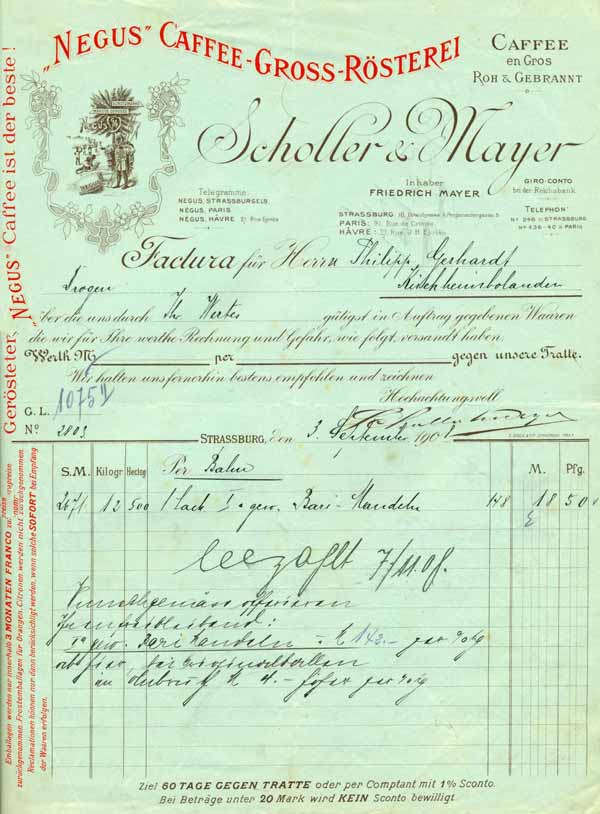 „NEGUS” CAFFEE-GROSS-RÖSTEREI
CAFFEE
en Gros
ROH & GEBRANNT
Scholler & Mayer
NEGUS
Inhaber
FRIEDRICH MAYER
GIRO-CONTO
bei der Reichsbank.
Telegramme:
NEGUS, STRASSBURG
NEGUS, PARIS
NEGUS, HÂVRE
STRASSBURG
PARIS: Rue de Crimée
HÂVRE:
TELEPHON:
STRASSBURG
PARIS
Factura für Herrn Philipp Gerhardt
Drogen Kirchheimbolanden
über die uns durch Ihr Wertes gütigst in Auftrag gegebenen Waaren
die wir für Ihre werthe Rechnung und Gefahr, wie folgt, versandt haben.
Werth M per gegen unsere Tratte.
Wir halten uns fernerhin bestens empfohlen und zeichnen
Hochachtungsvoll
1075
G. L.
Nº 2803
STRASSBURG, den 3. September 190
S.M. Kilogr Hectog Per Bahn M. Pfg.
2671 12 500 1 Sack Ia gew. Bari-Mandeln 148 18 50
bezahlt 7/11.08.
freibleibend:
Ia gew. Bari Mandeln 143.- per
ab hier, bei Originalballen
im Anbruch M. 4.- höher per
Ziel 60 TAGE GEGEN TRATTE oder per Comptant mit 1% Sconto.
Bei Beträge unter 20 Mark wird KEIN Sconto bewilligt.
Gerösteter „NEGUS” Caffee ist der beste!
Emballagen werden nur innerhalb 3 MONATEN FRANCO
zurückgenommen. Frostemballagen für Orangen, Citronen werden nicht zurückgenommen.
Reclamationen können nur dann berücksichtigt werden, wenn solche SOFORT bei Empfang
der Waaren erfolgen.